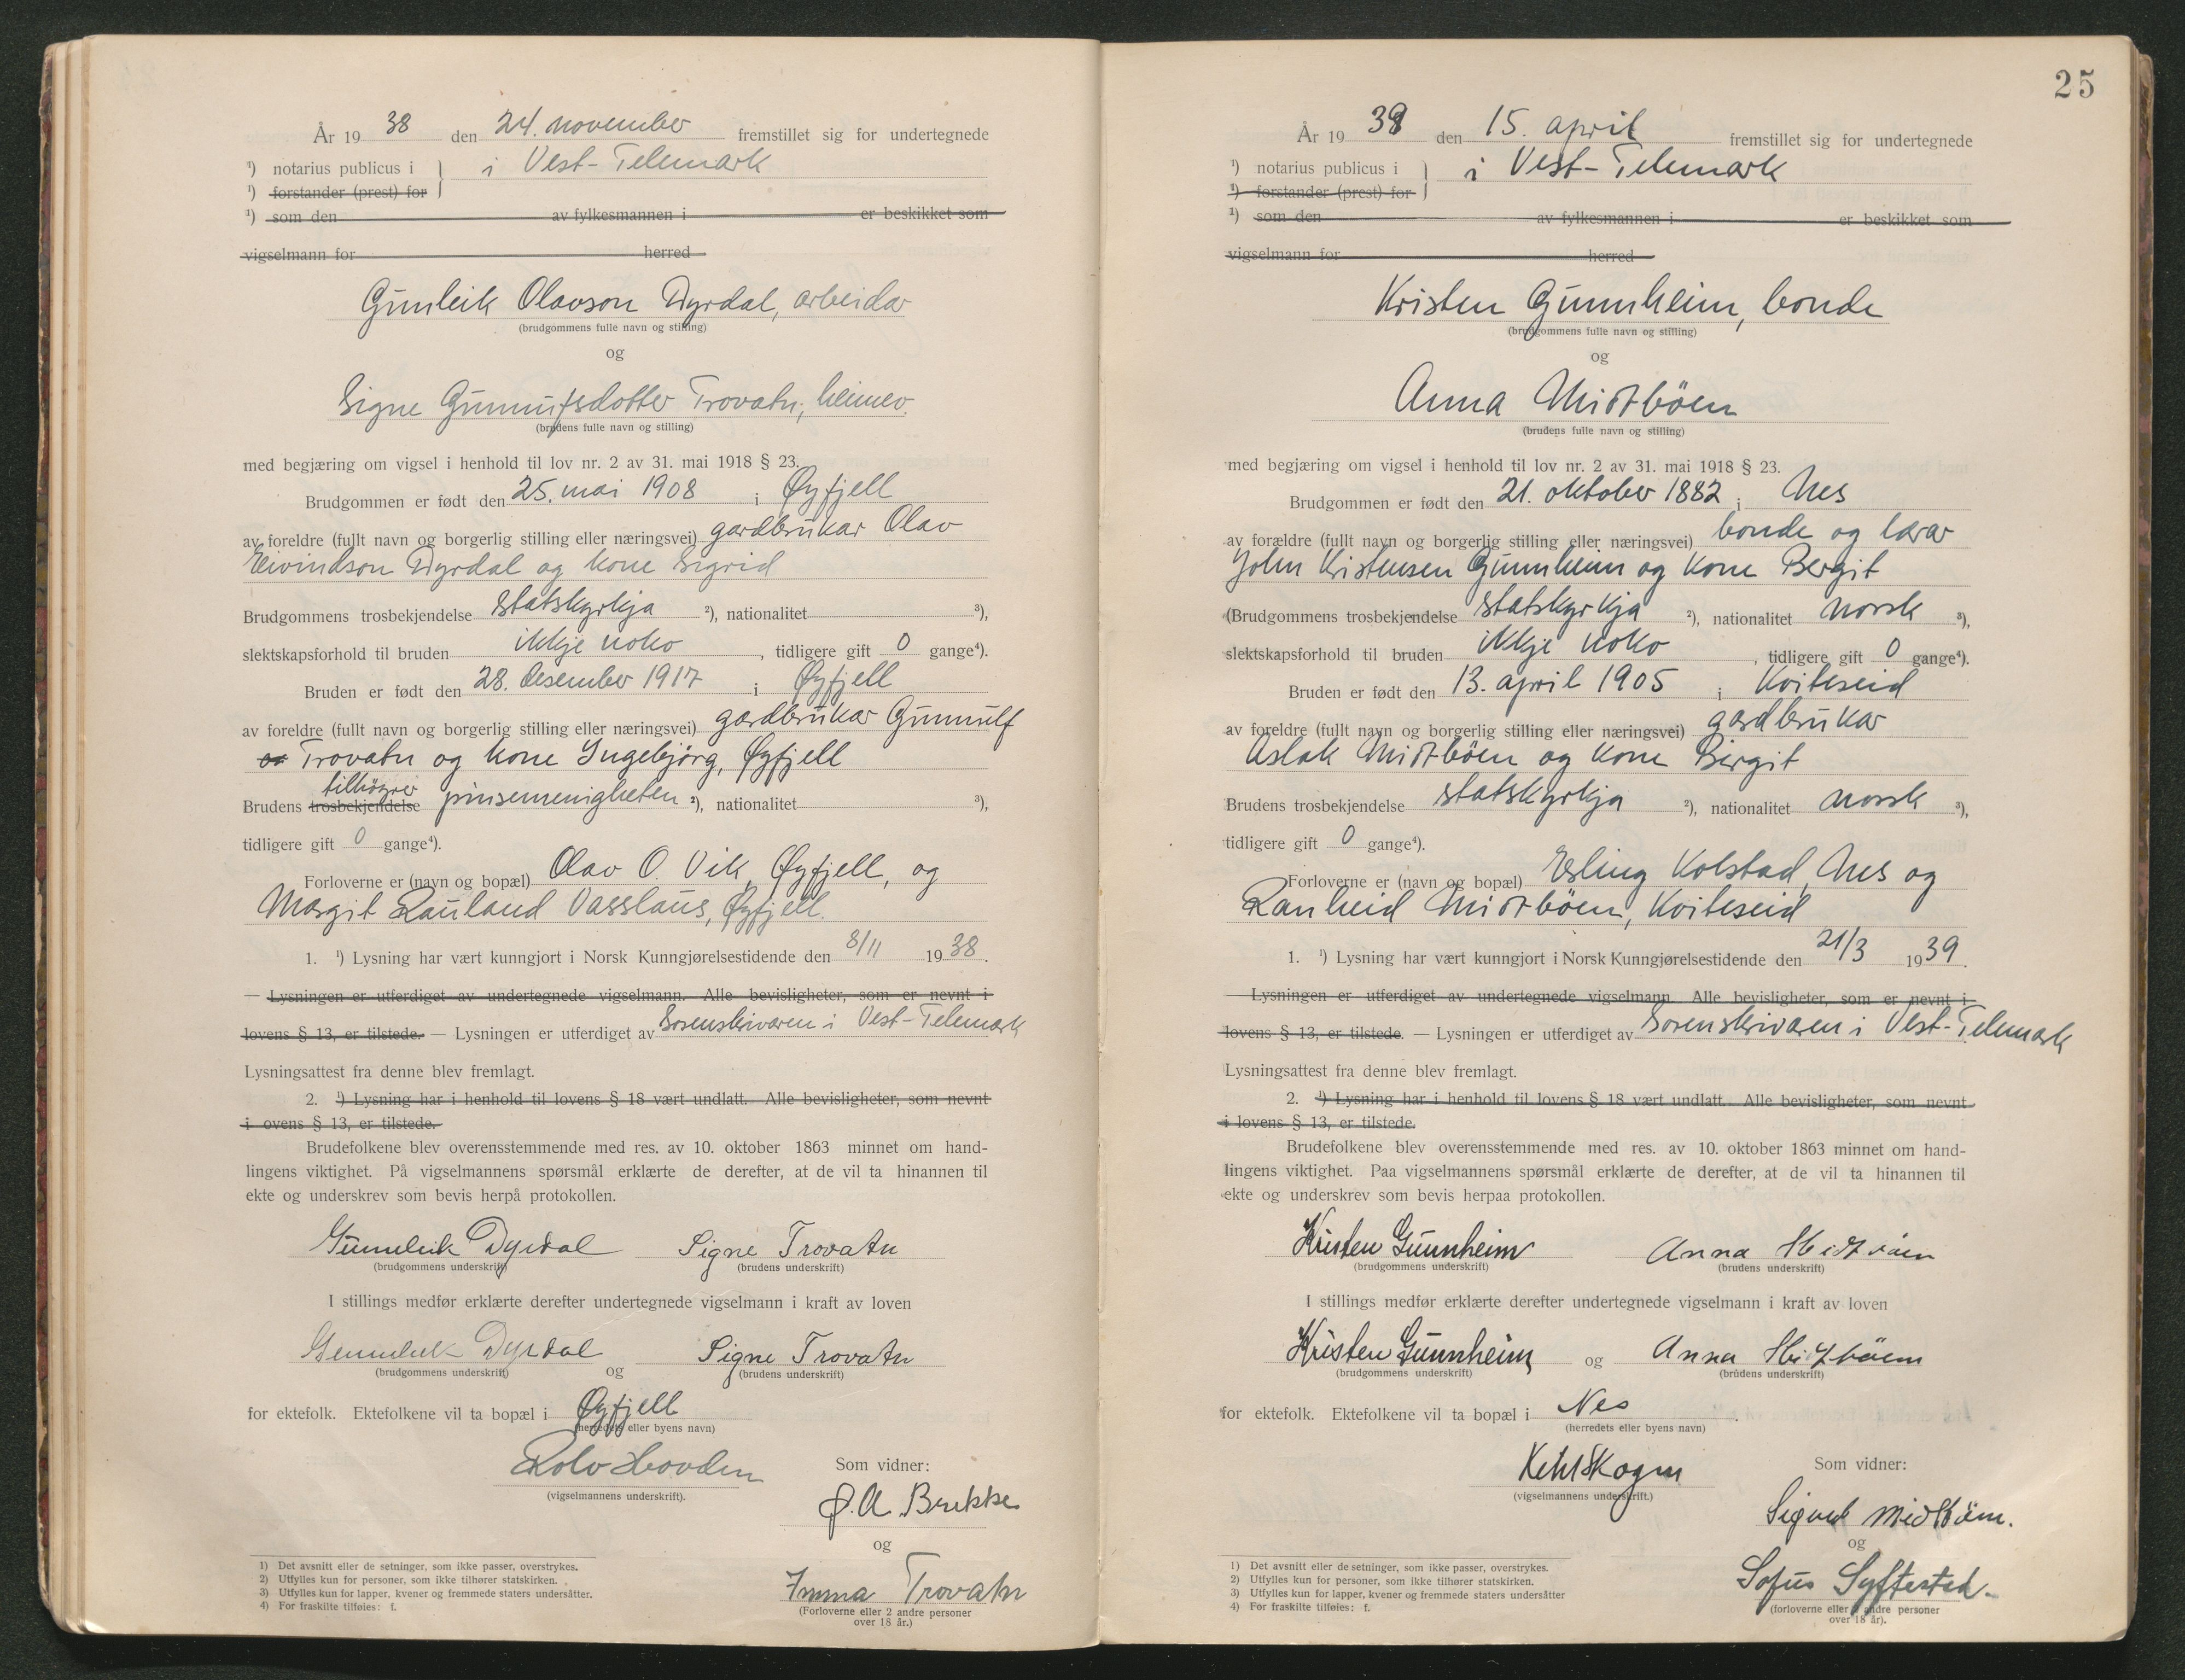 År 19 38 den 24. november fremstillet sig for undertegnede
¹) notarius publicus i } i Vest-Telemark
¹) forstander (prest) for
¹) som den av fylkesmannen i er beskikket som
vigselmann for herred
Gunleik Olavson Dyrdal, arbeidar
(brudgommens fulle navn og stilling)
og
Signe Gunnufsdotter Trovatn, heimev.
(brudens fulle navn og stilling)
med begjæring om vigsel i henhold til lov nr. 2 av 31. mai 1918 § 23.
Brudgommen er født den 25. mai 1908 i Øyfjell
av foreldre (fullt navn og borgerlig stilling eller næringsvei) gardbrukar Olav
Eivindson Dyrdal og kone Sigrid
Brudgommens trosbekjendelse statskyrkja ²), nationalitet ³),
slektskapsforhold til bruden ikkje noko, tidligere gift 0 gange⁴).
Bruden er født den 28. desember 1917 i Øyfjell
av foreldre (fullt navn og borgerlig stilling eller næringsvei) gardbrukar Gunnulf
Trovatn og kone Ingebjörg, Øyfjell
tilhöyrer
Brudens trosbekjendelse pinsemenigheten ²), nationalitet ³),
tidligere gift 0 gange⁴).
Forloverne er (navn og bopæl) Olav O. Vik, Øyfjell, og
Margit Rauland Vasslaus, Øyfjell.
1. ¹) Lysning har vært kunngjort i Norsk Kunngjørelsestidende den 8/11 1938.
— Lysningen er utferdiget av undertegnede vigselmann. Alle bevisligheter, som er nevnt i
lovens § 13, er tilstede. — Lysningen er utferdiget av Sorenskrivaren i Vest-Telemark
Lysningsattest fra denne blev fremlagt.
2. ¹) Lysning har i henhold til lovens § 18 vært undlatt. Alle bevisligheter, som nevnt
i ovens § 13, er tilstede.
Brudefolkene blev overensstemmende med res. av 10. oktober 1863 minnet om hand-
lingens viktighet. På vigselmannens spørsmål erklærte de derefter, at de vil ta hinannen til
ekte og underskrev som bevis herpå protokollen.
Gunnleik Dyrdal Signe Trovatn
(brudgommens underskrift) (brudens underskrift)
I stillings medfør erklærte derefter undertegnede vigselmann i kraft av loven
Gunnleik Dyrdal og Signe Trovatn
(brudgommens underskrift) (brudens underskrift)
for ektefolk. Ektefolkene vil ta bopæl i Øyfjell
(herredets eller byens navn)
Rolv Hovden Som vidner:
(vigselmannens underskrift).
Ø. A. Brekke
og
Imma Trovatn
(Forloverne eller 2 andre personer
over 18 år.)
1) Det avsnitt eller de setninger, som ikke passer, overstrykes.
2) Utfylles kun for personer, som ikke tilhører statskirken.
3) Utfylles kun for lapper, kvener og fremmede staters undersåtter.
4) For fraskilte tilføies: f.
25
År 19 39 den 15. april fremstillet sig for undertegnede
¹) notarius publicus i } i Vest-Telemark
¹) forstander (prest) for
¹) som den av fylkesmannen i er beskikket som
vigselmann for herred
Kristen Gunnheim, bonde
(brudgommens fulle navn og stilling)
og
Anna Midtböen
(brudens fulle navn og stilling)
med begjæring om vigsel i henhold til lov nr. 2 av 31. mai 1918 § 23.
Brudgommen er født den 21. oktober 1882 i Nes
av forældre (fullt navn og borgerlig stilling eller næringsvei) bonde og lærar
John Kristensen Gunnheim og kone Bergit
(Brudgommens trosbekjendelse statskyrkja ²), nationalitet norsk ³),
slektskapsforhold til bruden ikkje noko, tidligere gift 0 gange⁴).
Bruden er født den 13. april 1905 i Kviteseid
av foreldre (fullt navn og borgerlig stilling eller næringsvei) gardbrukar
Aslak Midtböen og kone Birgit
Brudens trosbekjendelse statskyrkja ²), nationalitet norsk ³),
tidligere gift 0 gange⁴).
Forloverne er (navn og bopæl) Erling Kolstad, Nes og
Ranheid Midtböen, Kviteseid
1. ¹) Lysning har vært kunngjort i Norsk Kunngjørelsestidende den 21/3 1939.
Lysningen er utferdiget av undertegnede vigselmann Alle bevisligheter, som er nevnt i
lovens § 13, er tilstede. — Lysningen er utferdiget av Sorenskrivaren i Vest-Telemark
Lysningsattest fra denne blev fremlagt.
2. ¹) Lysning har i henhold til lovens § 18 vært undlatt. Alle bevisligheter, som nevnt
i lovens § 13, er tilstede.
Brudefolkene blev overensstemmende med res. av 10. oktober 1863 minnet om hand-
lingens viktighet. Paa vigselmannens spørsmål erklærte de derefter, at de vil ta hinannen til
ekte og underskrev som bevis herpaa protokollen.
Kristen Gunnheim Anna Midtböen
(brudgommens underskrift) (brudens underskrift)
I stillings medfør erklærte derefter undertegnede vigselmann i kraft av loven
Kristen Gunnheim og Anna Midtböen
(brudgommens underskrift) (brudens underskrift)
for ektefolk. Ektefolkene vil ta bopæl i Nes
(herredets eller byens navn)
Ketil Skogen Som vidner:
(vigselmannens underskrift.)
Sigurd Midtböen.
og
Sofus Syftestad
(forloverne eller 2 andre personer
over 18 år).
1) Det avsnitt eller de setninger, som ikke passer, overstrykes.
2) Utfylles kun for personer, som ikke tilhører statskirken.
3) Utfylles kun for lapper, kvener og fremmede staters undersåtter
4) For fraskilte tilføies: f.